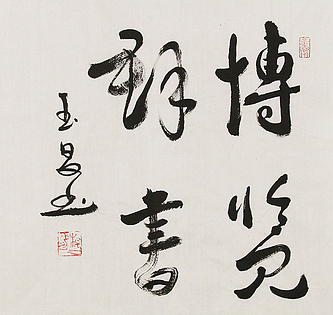 博览
群书
玉昌书